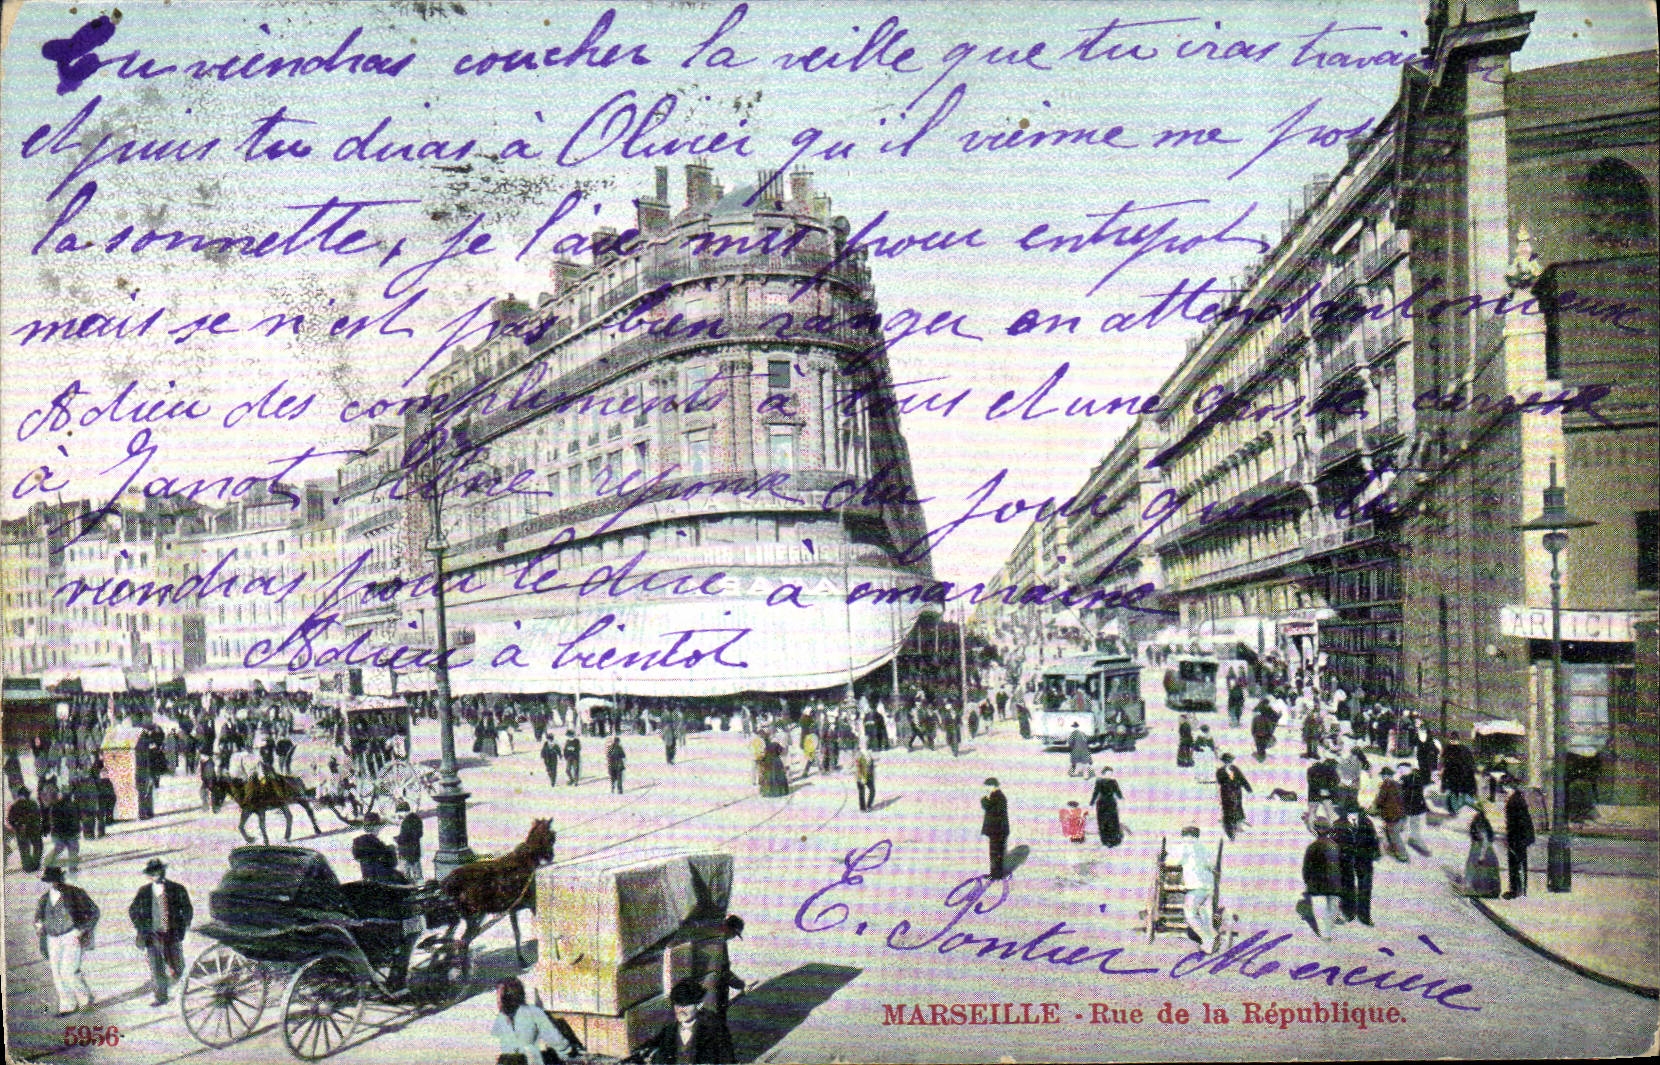 Tu viendras coucher la veille que tu iras travail
et puis tu diras à Olivier qu'il vienne me pos
la sonnette, je l'aie mis pour entrepot
mais se n'est pas bien ranger en attendant
Adieu des compliments à tous et une grosse caresse
à Janot. Une reponse du jour que tu
viendras pour le dire a marraine
Adieu à bientot
ARTICL
E. Pontier Mercière
MARSEILLE - Rue de la République.
5956